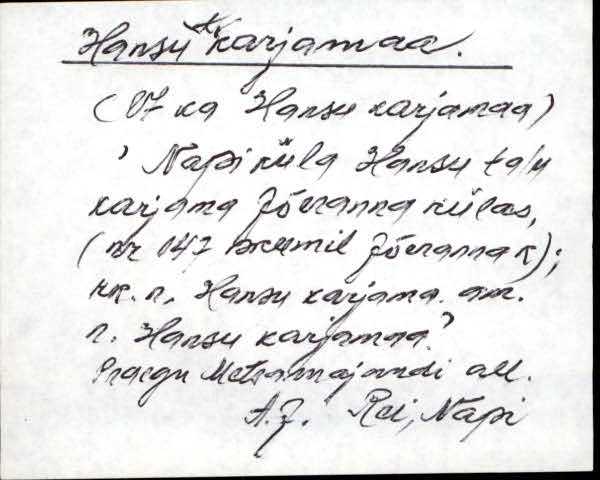 Hansu karjamaa.
(Vt ka Hansu karjamaa)
' Napi küla Hansu talu
karjama Jõeranna külas,
(nr 047 skeemil Jõeranna k);
rk. n. Hansu karjama. am.
n. Hansu karjamaa'
Praegu Metsamajandi all.
A.J. Rei, Napi